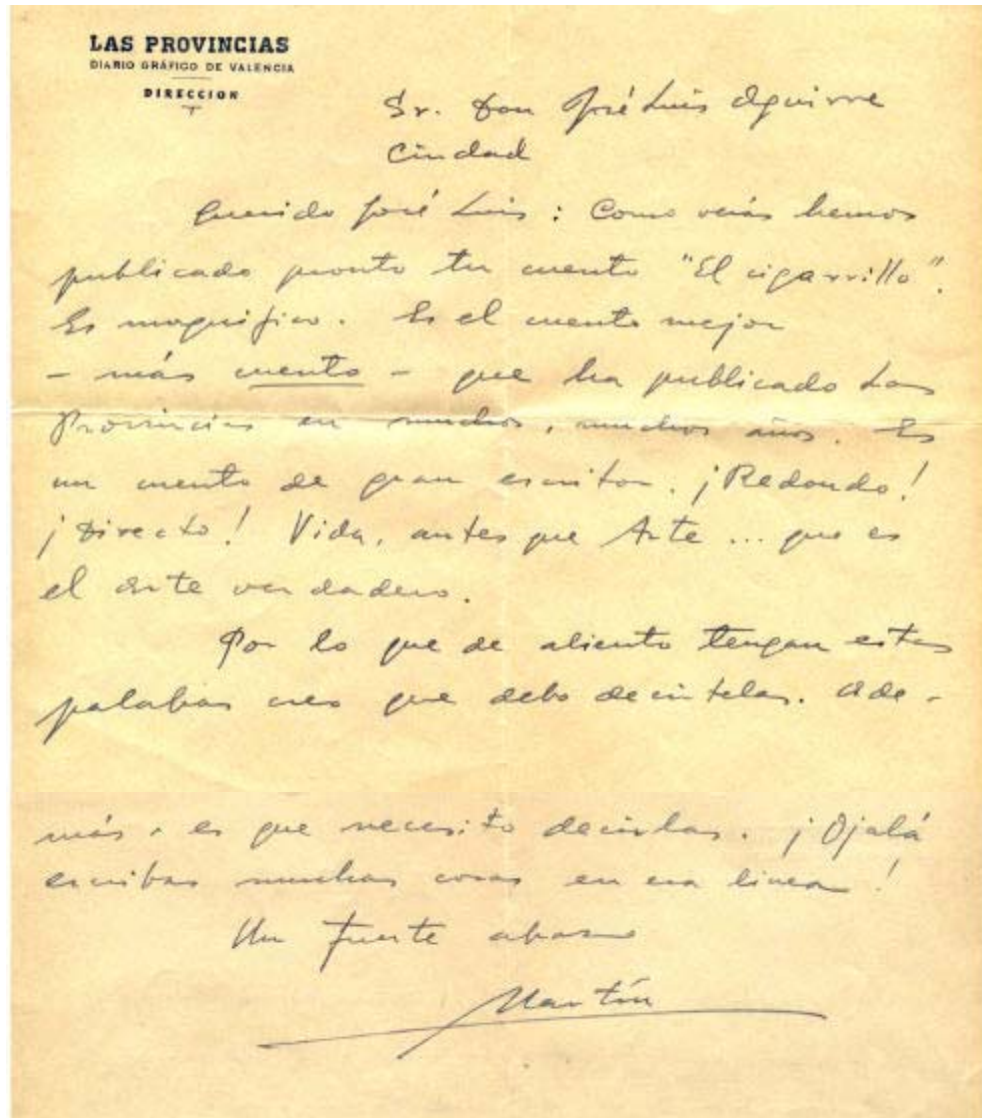 LAS PROVINCIAS
DIARIO GRÁFICO DE VALENCIA
DIRECCION
Sr. Don José Luis Aguirre
Ciudad
Querido José Luis: Como verás hemos
publicado pronto tu cuento "El cigarrillo".
Es magnífico. Es el cuento mejor
- más cuento - que ha publicado Las
Provincias en muchos, muchos años. Es
un cuento de gran escritor. ¡Redondo!
¡Directo! Vida, antes que Arte... que es
el arte verdadero.
Por lo que de aliento tengan estas
palabras creo que debo decírtelas. Ade-
más, es que necesito decirlas. ¡Ojalá
escribas muchas cosas en esa línea!
Un fuerte abrazo
Martín